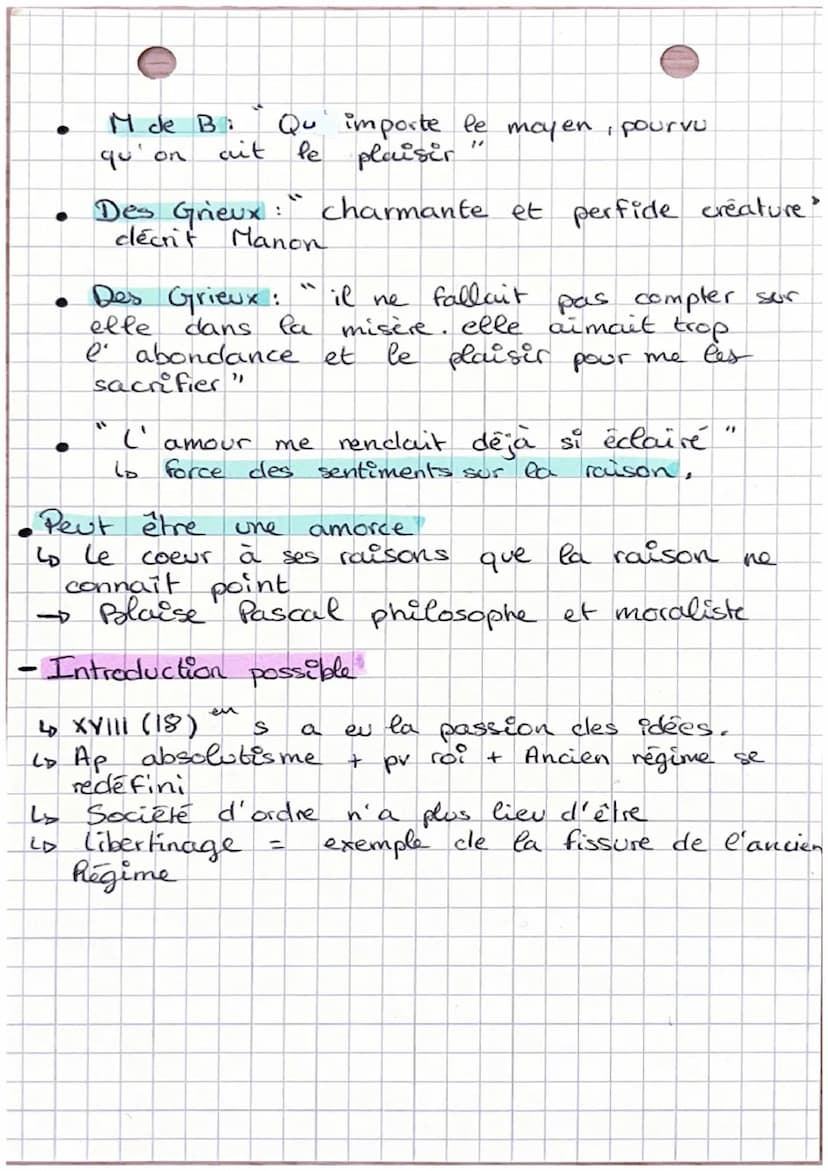 • M de B : " Qu' importe le moyen, pourvu
qu'on ait le plaisir "
• Des Grieux : " charmante et perfide créature"
décrit Manon
• Des Grieux : " il ne fallait pas compter sur
elle dans la misère. elle aimait trop
l' abondance et le plaisir pour me les
sacrifier "
• " L' amour me rendait déjà si éclairé "
↳ force des sentiments sur la raison.
• Peut être une amorce
↳ Le coeur à ses raisons que la raison ne
connaît point
→ Blaise Pascal philosophe et moraliste
- Introduction possible
↳ XVIII (18) en s a eu la passion des idées.
↳ Ap absolutisme + pv roi + Ancien régime se
redéfini
↳ Société d'ordre n'a plus lieu d'être
↳ Libertinage = exemple de la fissure de l'ancien
Régime